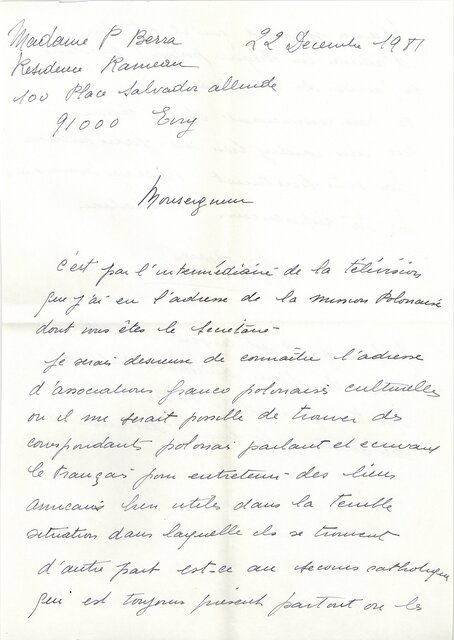 Madame P Berra 22 Decembre 1981
Residence Rameau
100 Place Salvador allende
91000 Evry
Monseigneur
c'est par l'intermédiaire de la télévision
que j'ai eu l'adresse de la mission Polonaise
dont vous êtes le secretaire
Je serais desireuse de connaître l'adresse
d'associations franco polonaises culturelles
ou il me serait possible de trouver des
correspondants polonais parlant et ecrivant
le français pour entretenir des liens
amicaux bien utiles dans la terrible
situation dans laquelle ils se trouvent
d'autre part est-ce au secours catholique
qui est toujours présent partout ou les